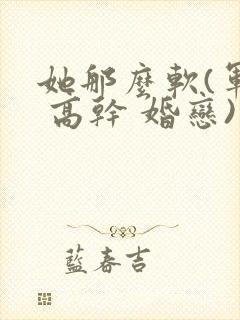 她那麼軟(軍
高幹 婚戀)
藍春吉